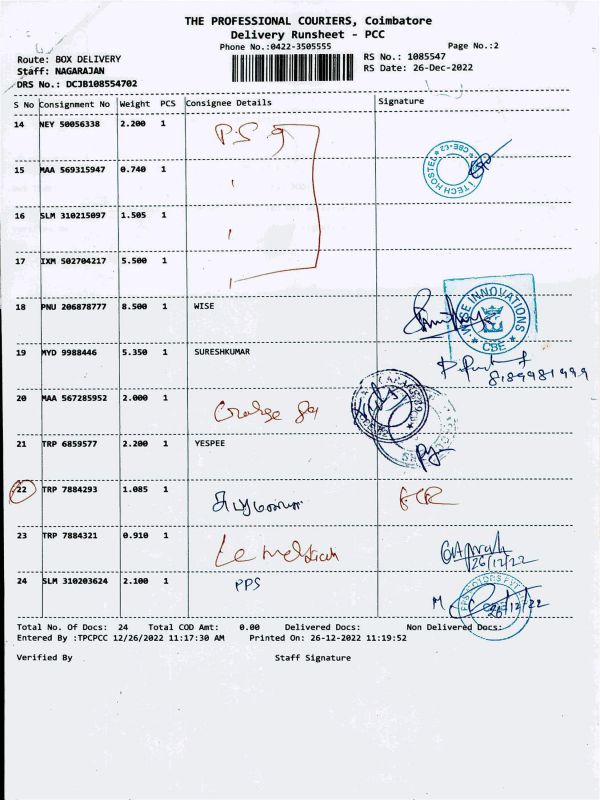 THE PROFESSIONAL COURIERS, Coimbatore
Delivery Runsheet - PCC
Phone No.:0422-3505555
Page No.:2
Route: BOX DELIVERY
RS No.: 1085547
Staff: NAGARAJAN
RS Date: 26-Dec-2022
DRS No.: DCJB108554702
S No Consignment No Weight PCS Consignee Details Signature
14 NEY 50056338 2.200 1 P.S.G
15 MAA 569315947 0.740 1
I TECH HOSTEL * CBE-62 *
16 SLM 310215097 1.505 1
17 IXM 502704217 5.500 1
18 PNU 206878777 8.500 1 WISE
WISE INNOVATIONS
* CBE *
19 MYD 9988446 5.350 1 SURESHKUMAR
8189981999
20 MAA 567285952 2.000 1
21 TRP 6859577 2.200 1 YESPEE
22 TRP 7884293 1.085 1
23 TRP 7884321 0.910 1
26/12/22
24 SLM 310203624 2.100 1 PPS
26/12/22
Total No. Of Docs: 24 Total COD Amt: 0.00 Delivered Docs: Non Delivered Docs:
Entered By :TPCPCC 12/26/2022 11:17:30 AM Printed On: 26-12-2022 11:19:52
Verified By Staff Signature